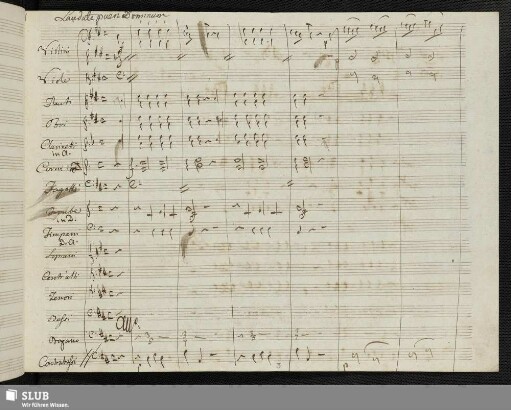 Laudate pueri Dominum
Violini
Viole
Flauti
Oboi
Clarinetti
in A.
Corni
Fagotti
Trombe
in D.
Timpani
D. A.
Soprani
Contralti
Tenori
Bassi
Organo
Contrabassi
SLUB
Wir führen Wissen.